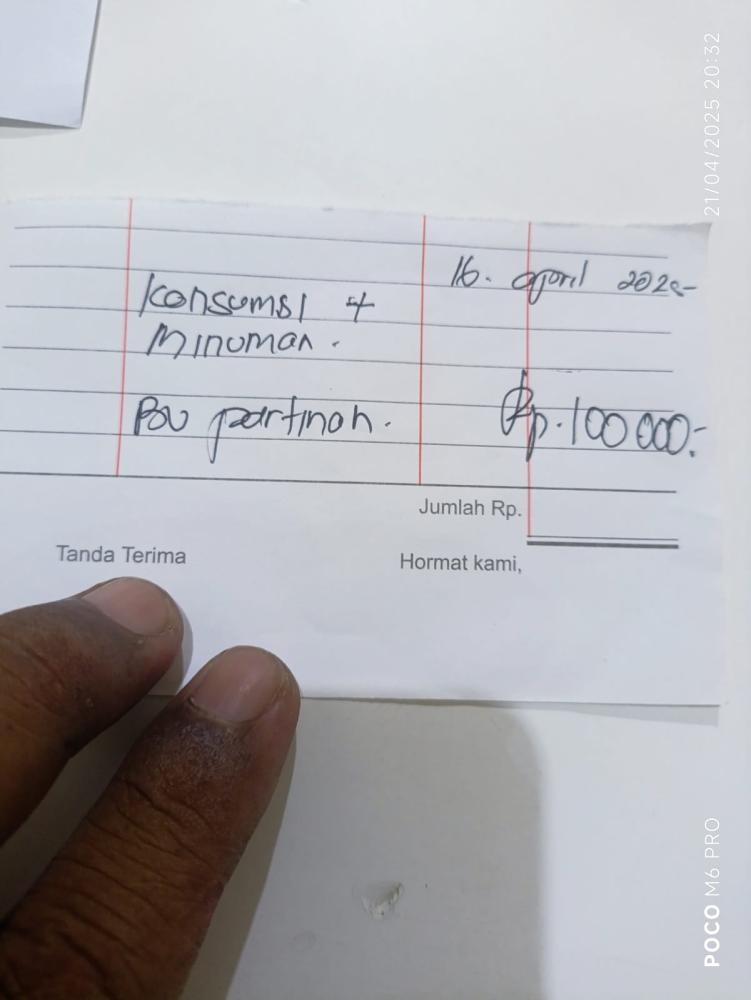 16. april 2025
Konsumsi +
Minuman.
Bu partinah.
Rp. 100 000.-
Jumlah Rp.
Tanda Terima
Hormat kami,
21/04/2025 20:32
POCO M6 PRO